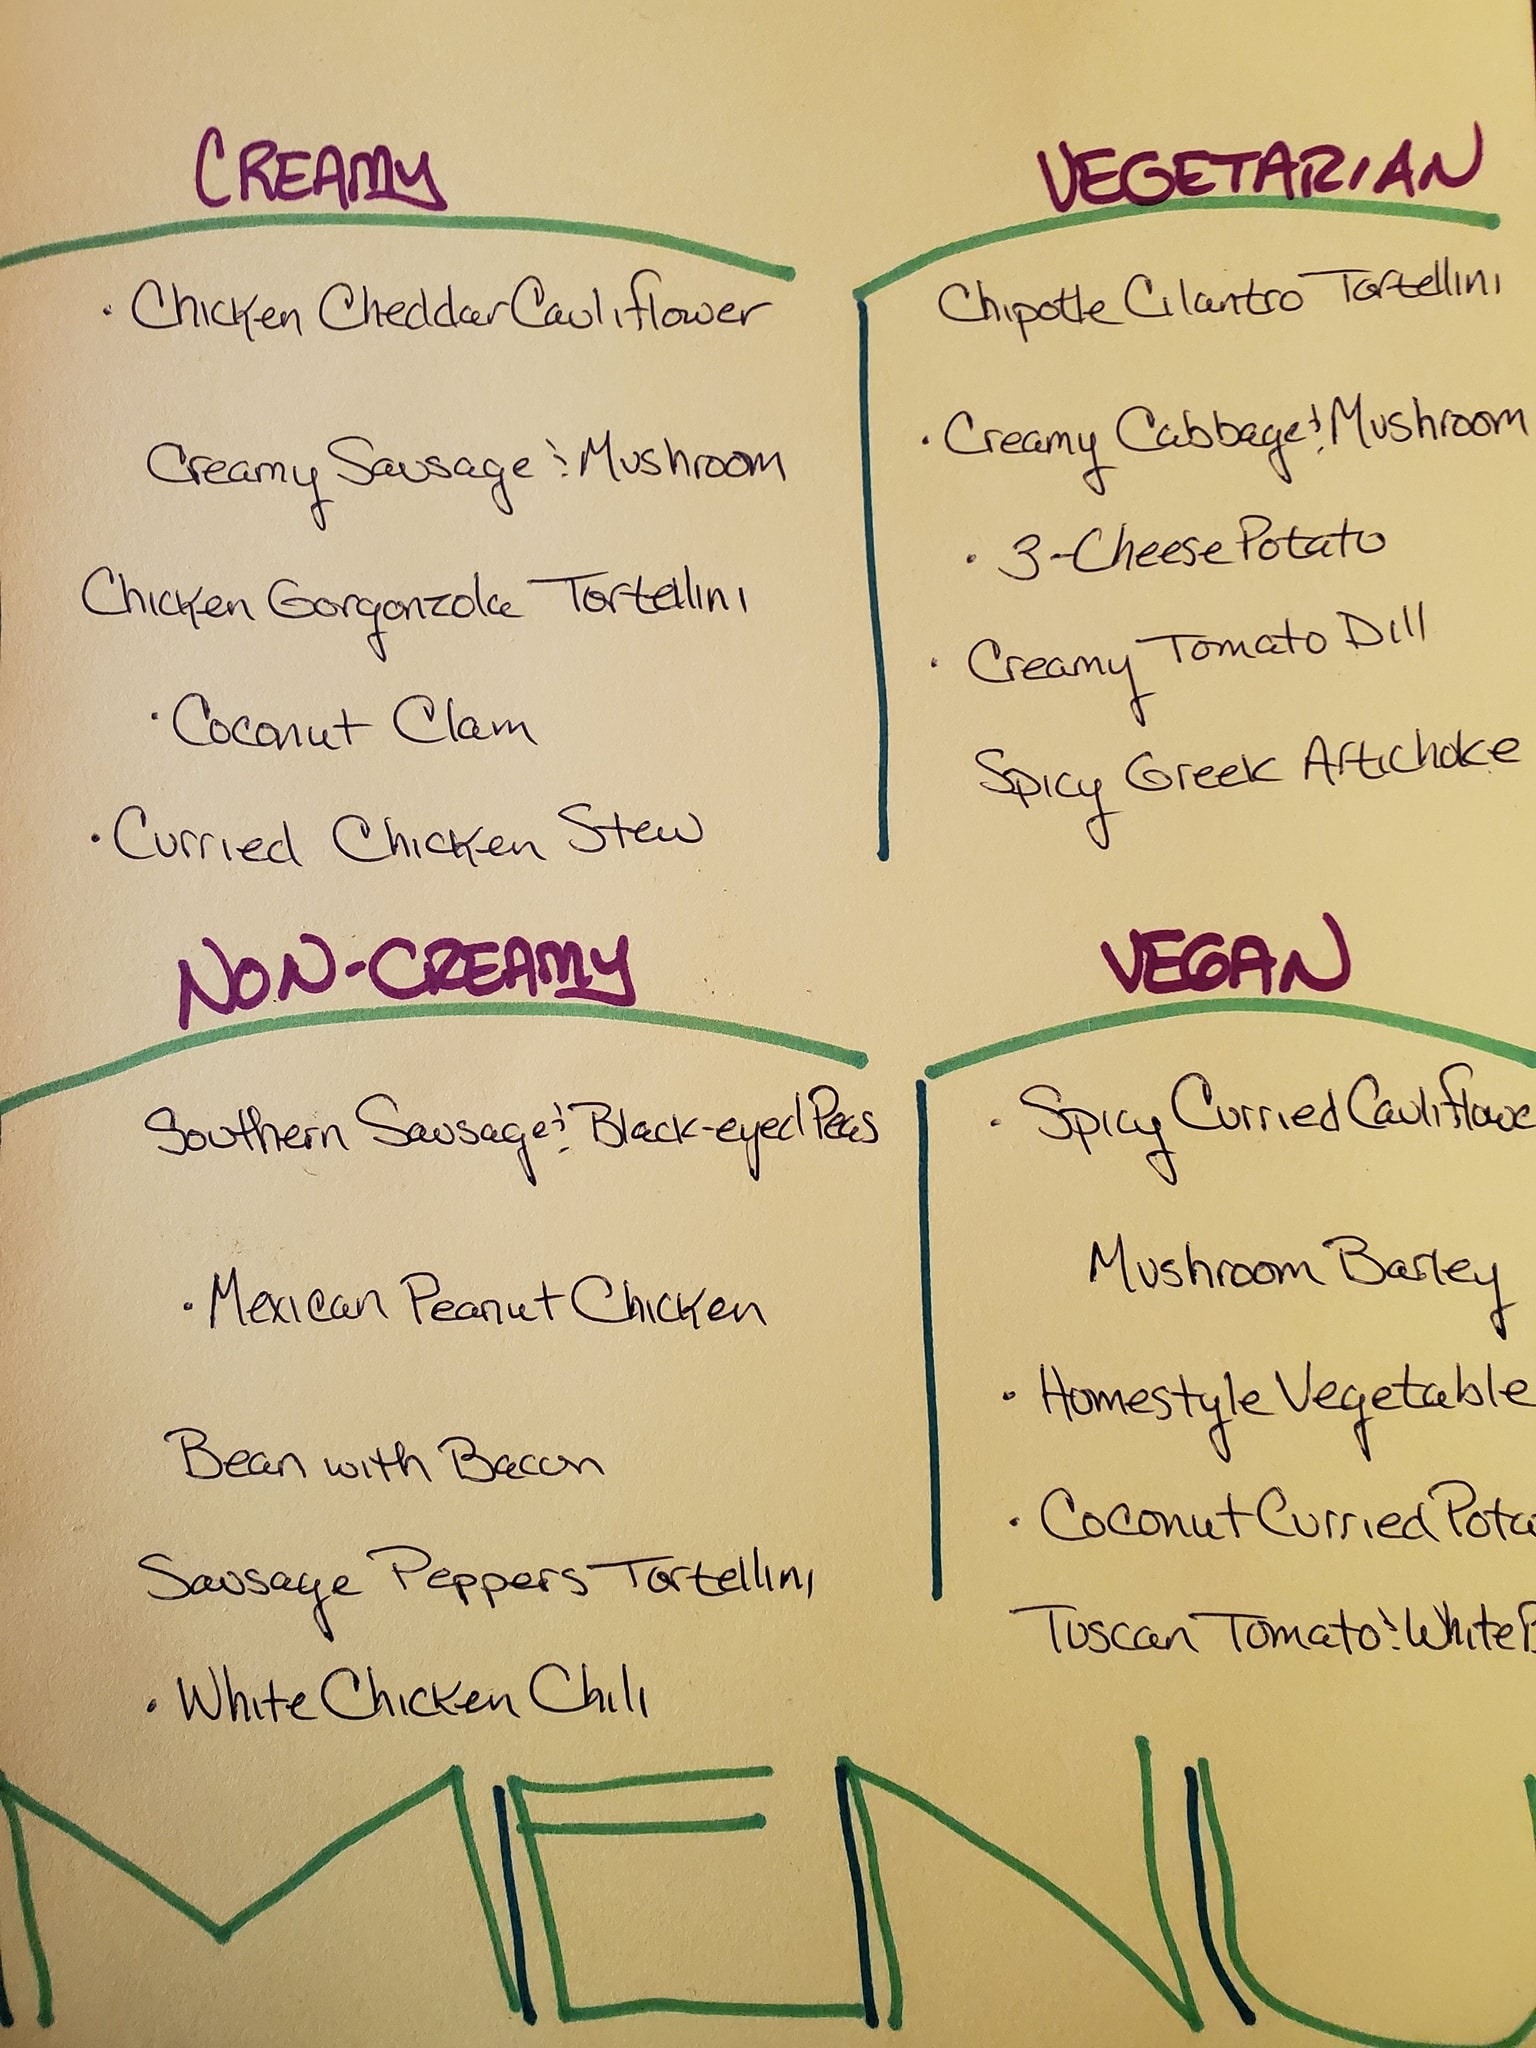 CREAMY
· Chicken Cheddar Cauliflower
Creamy Sausage & Mushroom
Chicken Gorgonzola Tortellini
· Coconut Clam
· Curried Chicken Stew
VEGETARIAN
Chipotle Cilantro Tortellini
· Creamy Cabbage & Mushroom
· 3-Cheese Potato
· Creamy Tomato Dill
Spicy Greek Artichoke
NON-CREAMY
Southern Sausage & Black-eyed Peas
· Mexican Peanut Chicken
Bean with Bacon
Sausage Peppers Tortellini
· White Chicken Chili
VEGAN
· Spicy Curried Cauliflowe
Mushroom Barley
· Homestyle Vegetable
· Coconut Curried Pota
Tuscan Tomato & White B
MENU